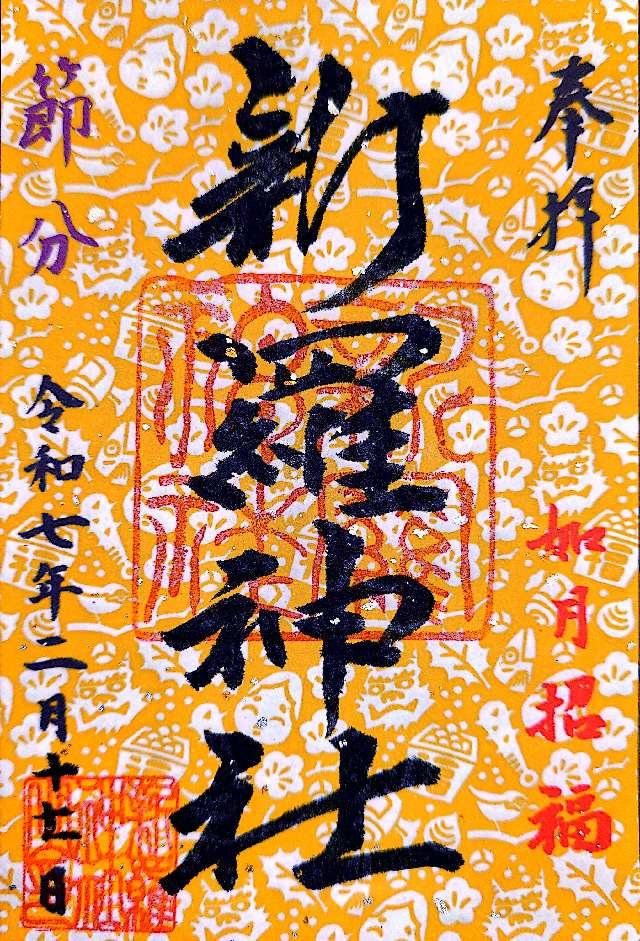 奉拝
如月招福
新羅神社
節分
令和七年二月十七日